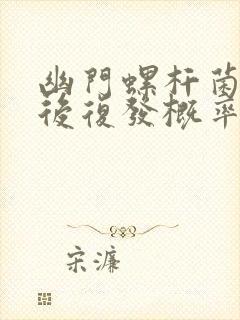 幽門螺杆菌
後復發概率
宋濂